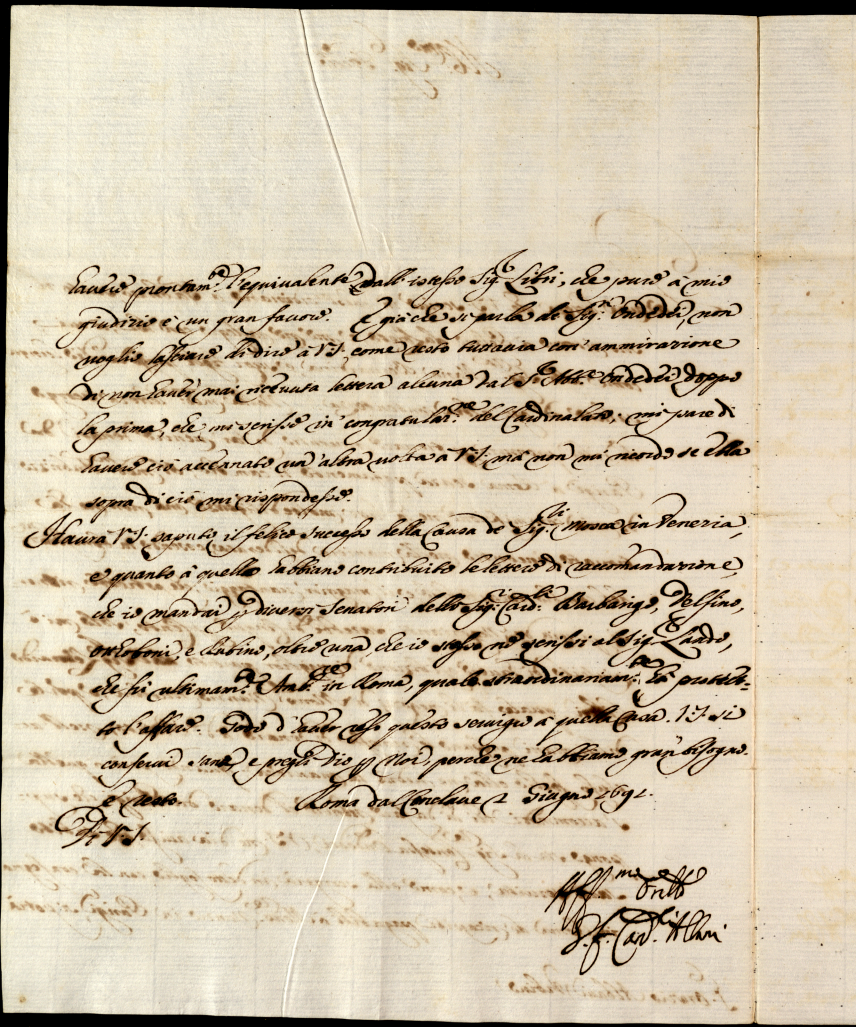 havere prontam.te l'equivalente dall'istesso Sig.r Libri, che pure à mio
giudizio è un gran favore. E già che si parla de Sig.ri Ondedei, non
voglio lasciare di dire à V.S. come resto tuttavia con ammirazione
di non haver mai ricevuta lettera alcuna dal S.r Abb.te Ondedei doppo
la prima, che mi scrisse in congratulaz.ne del Cardinalato; mi pare di
havere ciò accennato un'altra volta à V.S. mà non mi ricordo se Ella
sopra di ciò mi rispondesse.
Haurà V.S. saputo il felice successo della Causa de Sig.ri Mosca in Venezia,
e quanto à quella habbiano contribuito le lettere di raccomandazione,
che io mandai p diversi Senatori delli Sig.ri Card.li Barbarigo, Delfino,
Otthoboni, e Rubino, oltre una, che io stesso ne scrissi al Sig.r Lando,
che fù ultimam.te Amb.re in Roma, quale straordinariam.te hà protet-
to l'affare. Godo d'haver reso questo servigio à questa Casa. V.S. si
conservi sano, e preghi Dio p Noi, perche ne habbiamo gran bisogno.
e resto. Roma dal Conclave 2 Giugno 1691.
Di V.S.
Aff.mo Frillo
G. F. Card.li Albani